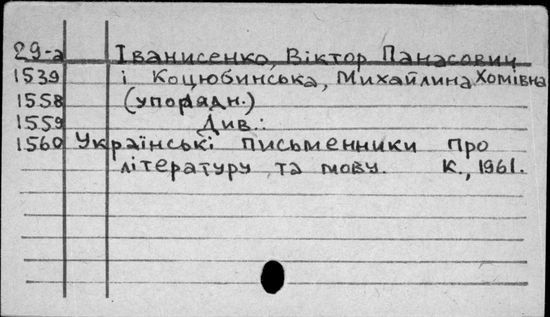 29-а Іванисенко, Віктор Панасович
1539 і Коцюбинська, Михайлина Хомівна
1558 (упорядн.)
1559 Див.:
1560 Українські письменники про
літературу та мову. К., 1961.